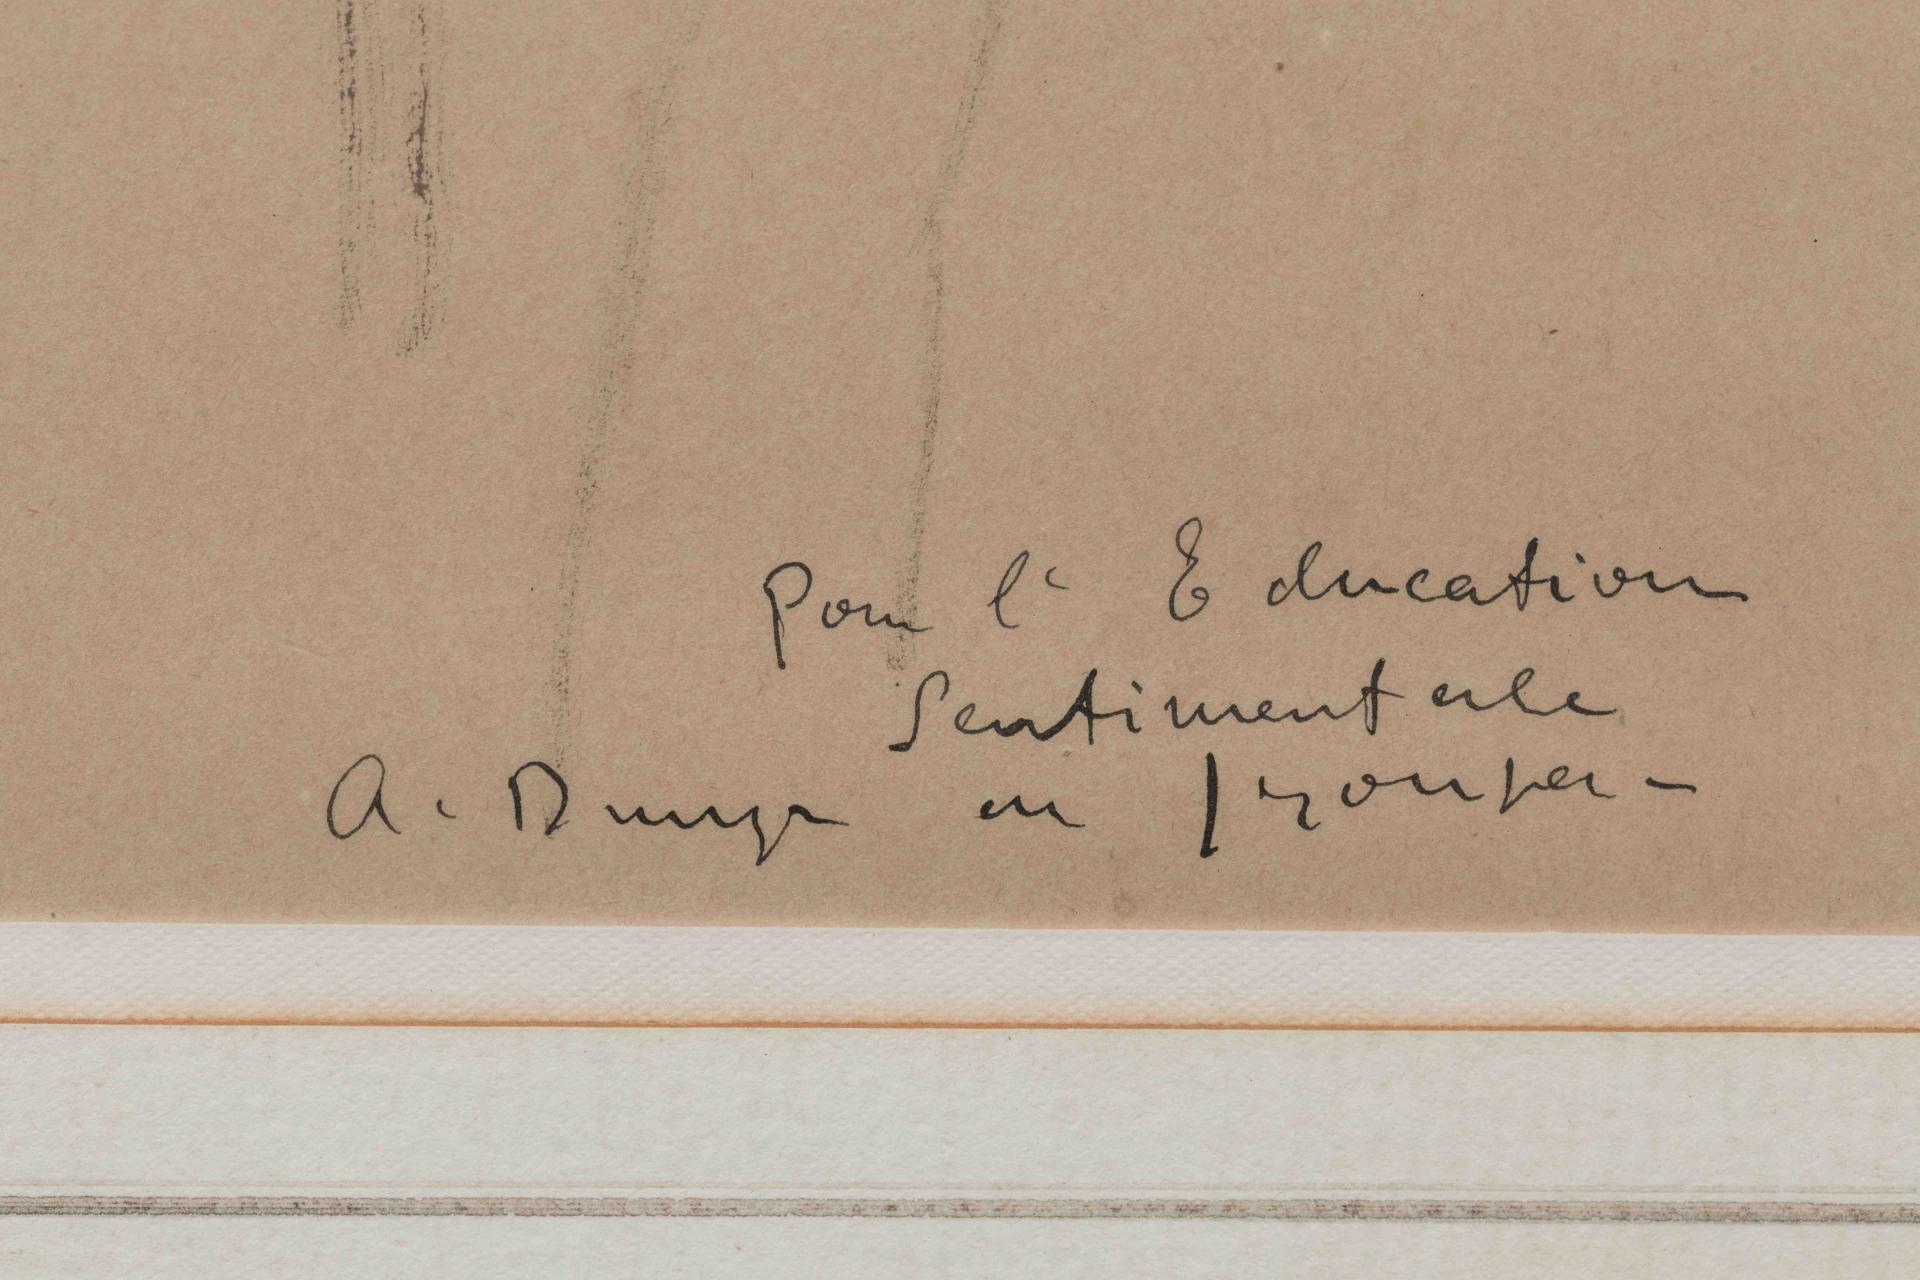 Pour l'Education
Sentimentale
A. Dunoyer de Segonzac